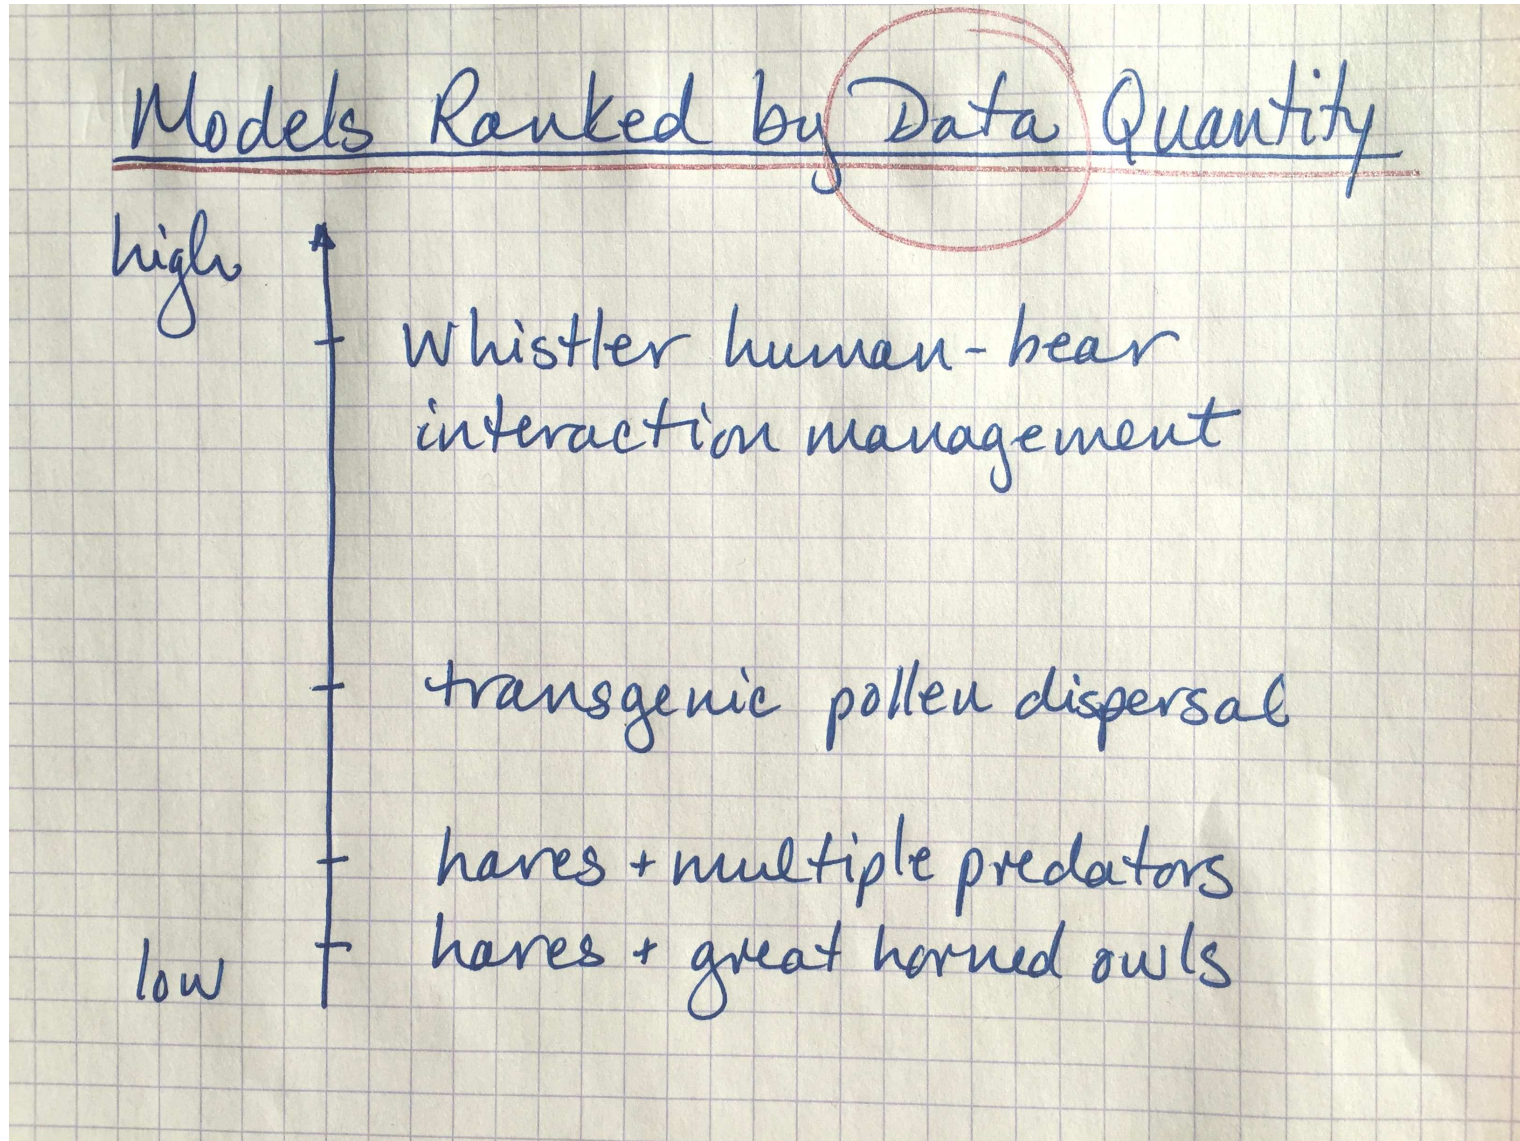 Models Ranked by Data Quantity
high
Whistler human-bear
interaction management
transgenic pollen dispersal
hares + multiple predators
hares + great horned owls
low